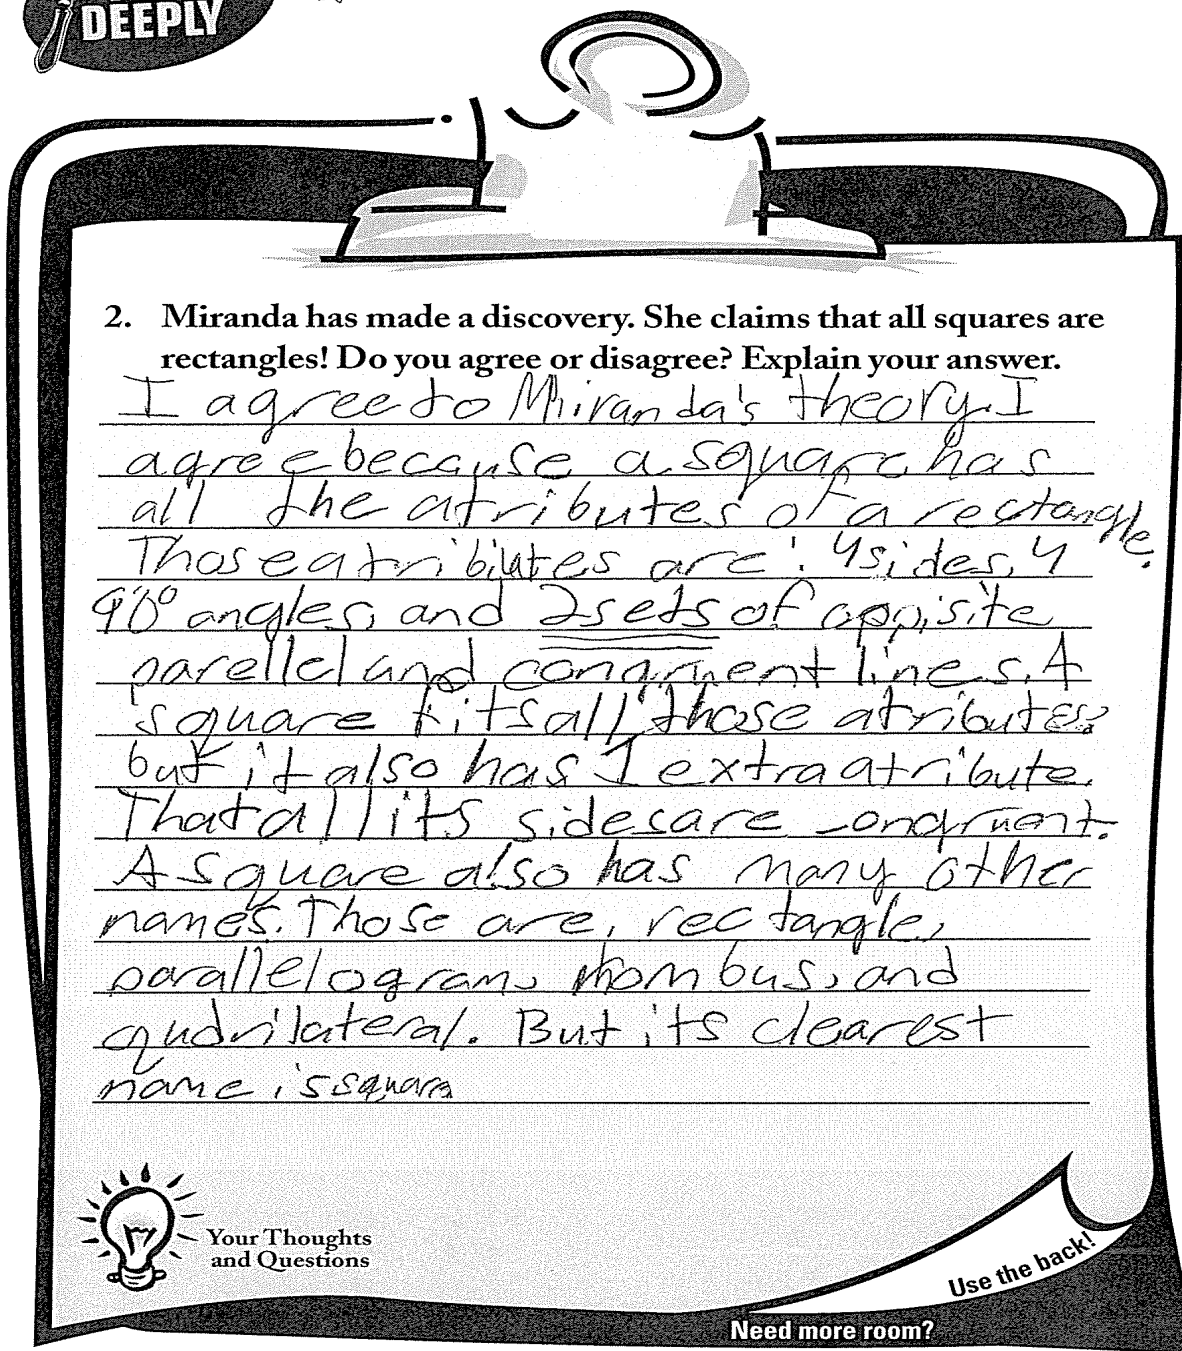 DEEPLY
2. Miranda has made a discovery. She claims that all squares are
rectangles! Do you agree or disagree? Explain your answer.
I agree to Miranda's theory. I
agree because a square has
all the atributes of a rectangle.
Those atribiutes are: 4 sides, 4
90° angles, and 2 sets of oppisite
parellel and congruent lines. A
square fits all those atributes,
but it also has 1 extra atribute.
That all its sides are congruent.
A square also has many other
names. Those are, rectangle,
parallelogram, rhombus, and
qudrilateral. But its clearest
name is square
Your Thoughts
and Questions
Use the back!
Need more room?